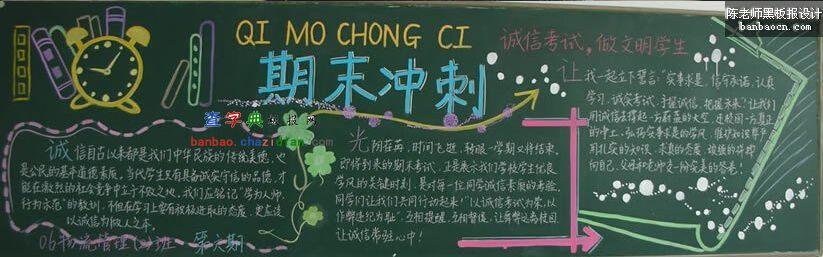 陈老师黑板报设计
banbaocn.com
QI MO CHONG CI
期末冲刺
查字典板报网
banbao.chazidian.com
诚信考试,做文明学生
诚信自古以来都是我们中华民族的传统美德,也
是公民的基本道德素质。当代学生只有具备诚实守信的品德,才
能在激烈的社会竞争中立于不败之地。我们应铭记“学为人师,
行为示范”的教训,不但在学习上要有积极进取的态度,更应该
以诚信为做人之本。
06物流管理(2)班 第六期
光阴荏苒,时间飞逝,转眼一学期又将结束,
即将到来的期末考试,正是展示我们学校学生优良
学风的关键时刻,是对每一位同学诚信素质的考验,
同学们让我们共同行动起来!“以诚信考试为荣,以
作弊违纪为耻”,互相提醒,互相督促,让舞弊远离校园,
让诚信常驻心中!
让我们一起立下誓言:“实事求是,信守承诺,认真
学习,诚实考试,手握诚信,把握未来”让我们
用诚信去撑起一方蔚蓝的天空,进校园一方真正
的净土,弘扬实事求是的学风,维护知识尊严
用扎实的知识,求真的态度
向自己,父母和老师交一份完美的答卷!